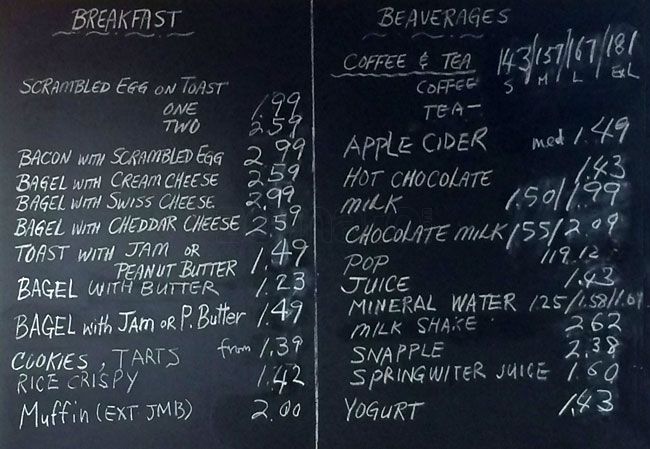 BREAKFAST
SCRAMBLED EGG ON TOAST
ONE 1.99
TWO 2.59
BACON WITH SCRAMBLED EGG 2.99
BAGEL WITH CREAM CHEESE 2.59
BAGEL WITH SWISS CHEESE 2.99
BAGEL WITH CHEDDAR CHEESE 2.59
TOAST WITH JAM OR
PEANUT BUTTER 1.49
BAGEL WITH BUTTER 1.23
BAGEL with JAM OR P. Butter 1.49
COOKIES, TARTS from 1.39
RICE CRISPY 1.42
Muffin (EXT JMB) 2.00
BEAVERAGES
COFFEE & TEA 143/157/167/181
COFFEE S M L ExL
TEA—
APPLE CIDER med 1.49
HOT CHOCOLATE 1.43
MILK 1.50/1.99
CHOCOLATE MILK 155/2.09
POP 119.12
JUICE 1.43
MINERAL WATER 125/1.58/1.67
MILK SHAKE 262
SNAPPLE 2.38
SPRINGWITER JUICE 1.60
YOGURT 1.43